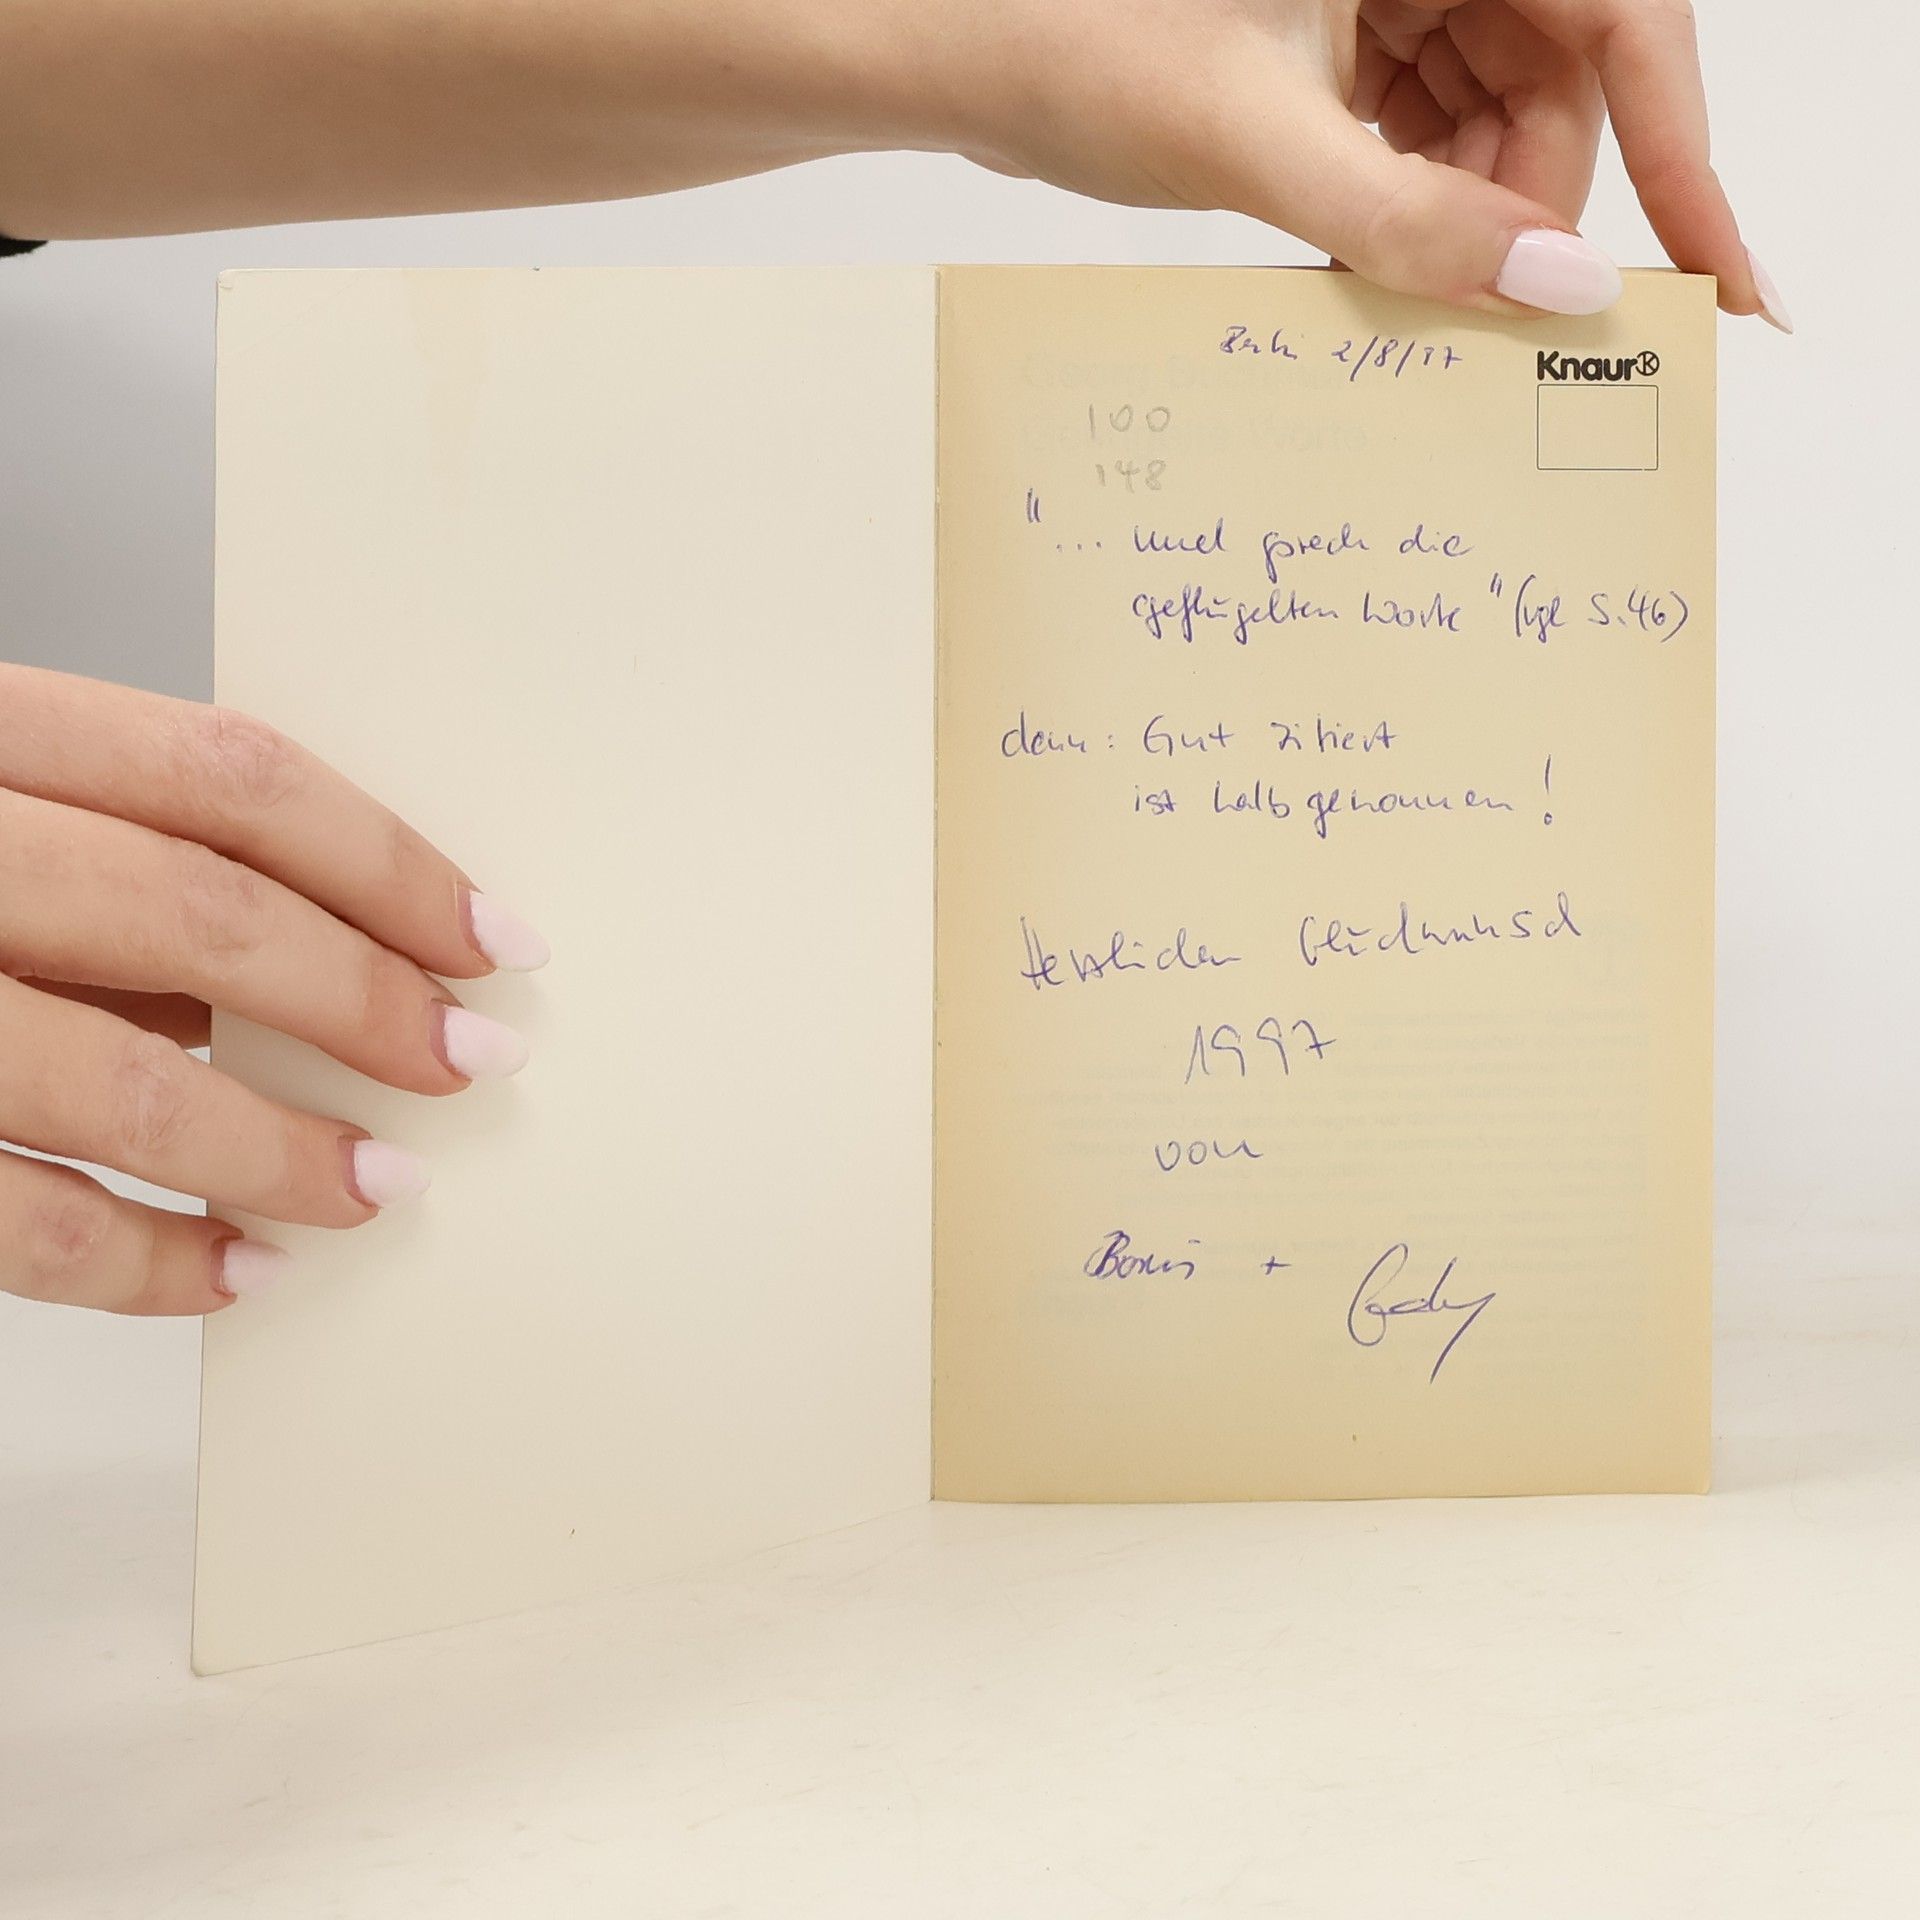 Berlin 2/8/97
Knaur
100
148
"... und sprach die
geflügelten Worte" (vgl S. 46)
denn: Gut zitiert
ist halb gewonnen!
Herzlichen Glückwunsch
1997
von
Boris +